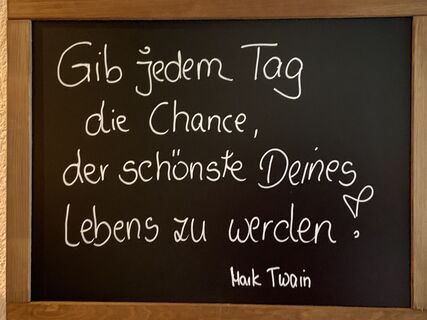 Gib jedem Tag
die Chance,
der schönste Deines
Lebens zu werden!
Mark Twain